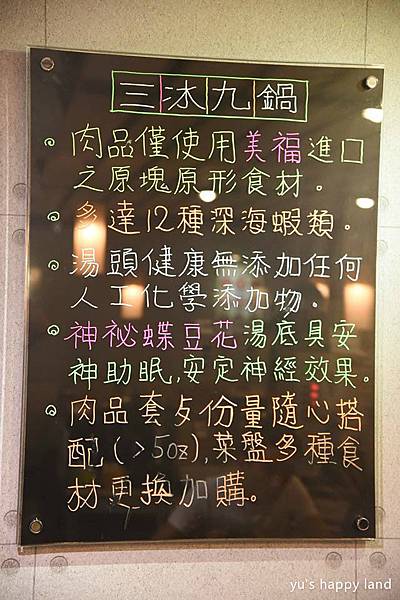 三沐九鍋
肉品僅使用美福進口
之原塊原形食材。
多達12種深海蝦類。
湯頭健康無添加任何
人工化學添加物。
神祕蝶豆花湯底具安
神助眠,安定神經效果。
肉品套歺份量隨心搭
配(>5oz),菜盤多種食
材更換加購。
yu's happy land